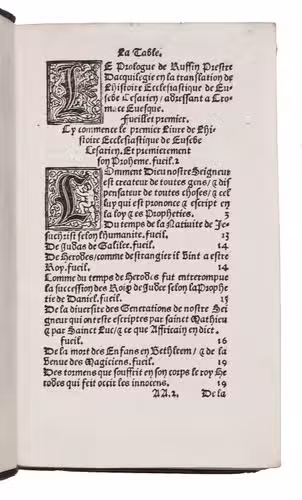 La Table.
LE Prologue de Ruffin Prestre
Dacquilegie en la translation de
Lhistoire Ecclesiastique de Eu-
sebe Cesarien/ adressant a Cro-
mace Euesque.
Fueillet premier.
Cy commence le premier Liure de Lhi-
stoire Ecclesiastique de Eusebe
Cesarien. Et premierement
son Proheme. fueil.2
COmment Dieu nostre Seigneur
est createur de toutes gens/ & dis
pensateur de toutes choses/ & cel
luy qui est prononce & escript en
la loy & es Propheties. 3
Du temps de la Natiuite de Je-
suchrist selon lhumanite. fueil. 13
De Judas de Galilee. fueil. 14
De Herodes/ comme destrangier il vint a estre
Roy. fueil. 14
Comme du temps de Herodes fut enterrompue
la succession des Roys de Judee selon la Prophe
tie de Daniel. fueil. 15
De la diuersite des Generations de nostre Sei-
gneur qui ont este escriptes par saint Mathieu
& par Sainct Luc/ & ce que Affricain en dict.
fueil. 16
De la mort des Enfans en Bethleem/ & de la
Venue des Magiciens. fueil. 19
Des tormens que souffrit en son corps le roy He
rodes qui feit occir les innocens. 19
AA.2. De la